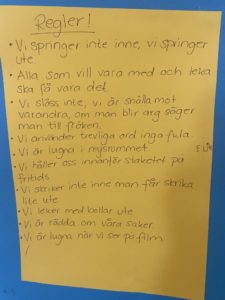 Regler!
• Vi springer inte inne, vi springer
ute.
• Alla som vill vara med och leka
ska få vara det.
• Vi slåss inte, vi är snälla mot
varandra, om man blir arg säger
man till fröken.
• Vi använder trevliga ord inga fula.
• Vi är lugna i mysrummet.
• Vi håller oss innanför staketet på
fritids.
• Vi skriker inte inne man får skrika
lite ute
• Vi leker med bollar ute
• Vi är rädda om våra saker
• Vi är lugna när vi ser på film